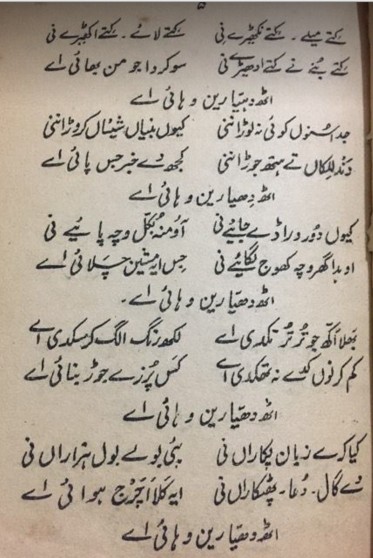 ۵
کِتے میلے۔ کِتے نکھیڑے نی کِتے لائے۔ کِتے اکھیڑے نی
کِتے بُنے نے کِتے ادھیڑے نی سو کردا جو من بھائی اے
اٹھ دھیّا رین وہائی اے
جد اسنوں کوئی نہ لوڑ اننی کیوں بنیاں شیئاں کروڑ اننی
دَند للکاں تے ہتھ جوڑ اننی کجھ دے خبر جس پائی اے
اٹھ دھیّا رین وہائی اے
کیوں دُور وراڈے جائیے نی آؤ منہ بُکّل وچہ پائیے نی
اوہدا گھر وچہ کھوج لگائیے نی جس ایہ مشین چلائی اے
اٹھ دھیّا رین وہائی اے۔
بھلا اکھّ جو تُر تُر تکدی اے لکھ رنگ الگ کر سکدی اے
کم کرنوں کدے نہ تھکدی اے کس پُرزے جوڑ بنائی اے
اٹھ دھیّا رین وہائی اے
کیا کرے زبان پکاراں نی پئی بولے بول ہزاراں نی
دے گال۔ دُعا۔ پھٹکاراں نی ایہ کلا اچرج ہوائی اے
اٹھ دھیّا رین وہائی اے